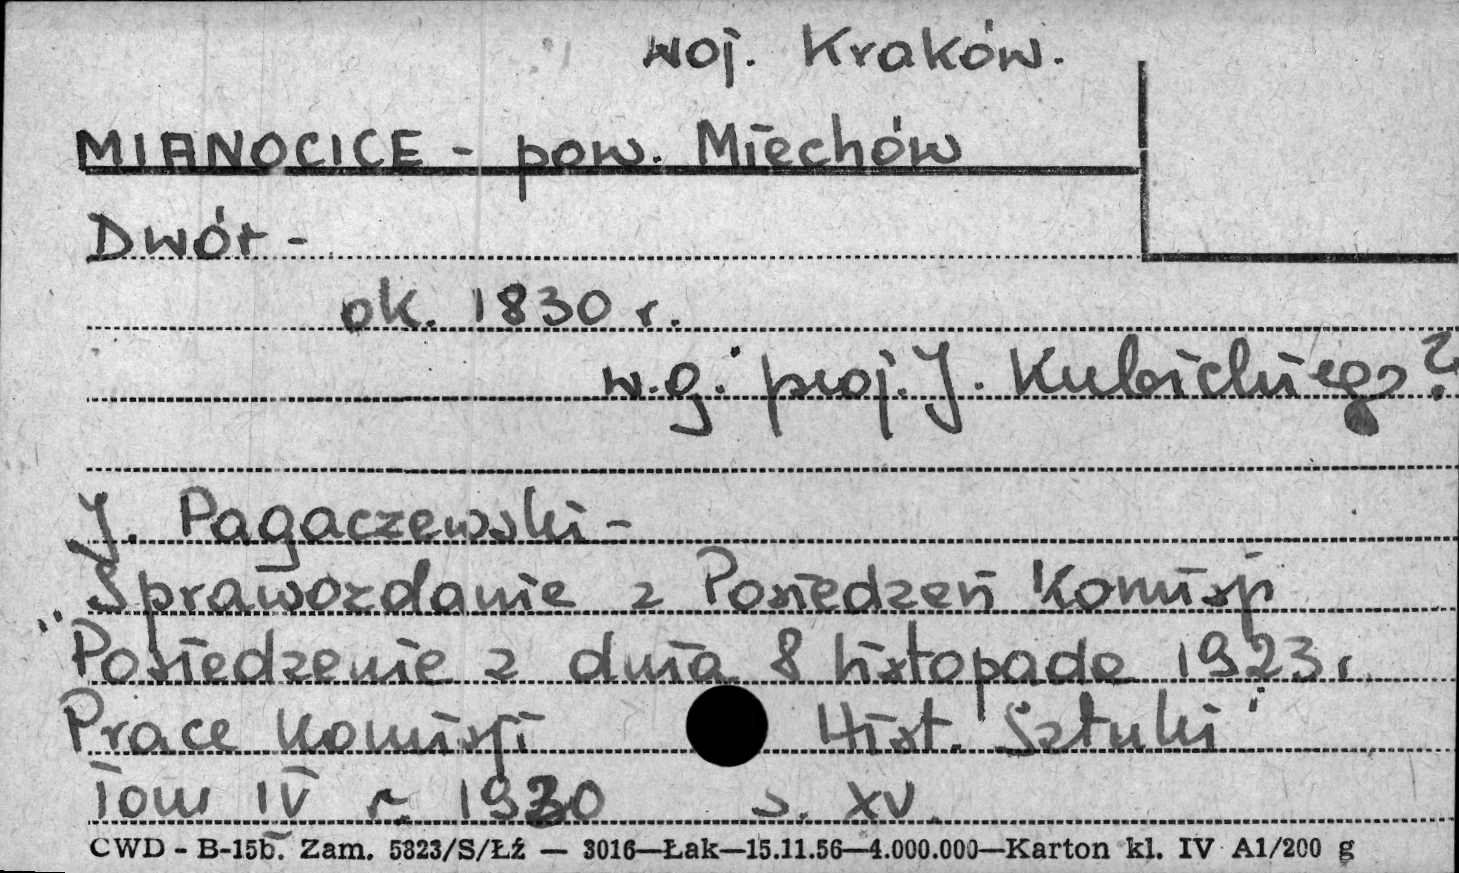 woj. Kraków.
MIANOCICE - pow. Miechów
Dwór -
ok. 1830 r.
w.g. proj. J. Kubickiego?
J. Pagaczewski -
"Sprawozdanie z Posiedzeń Komisji
Posiedzenie z dnia 8 listopada 1923 r.
Prace Komisji Hist. Sztuki"
Tom IV r. 1930 s. XV.
CWD - B-15b. Zam. 5823/S/Łź — 3016—Łak—15.11.56—4.000.000—Karton kl. IV A1/200 g